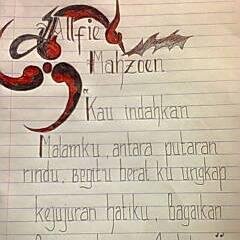 Allfie
Mahzoen
" Kau indahkan
Malamku, antara putaran
rindu, Begitu berat ku ungkap
kejujuran hatiku, Bagaikan